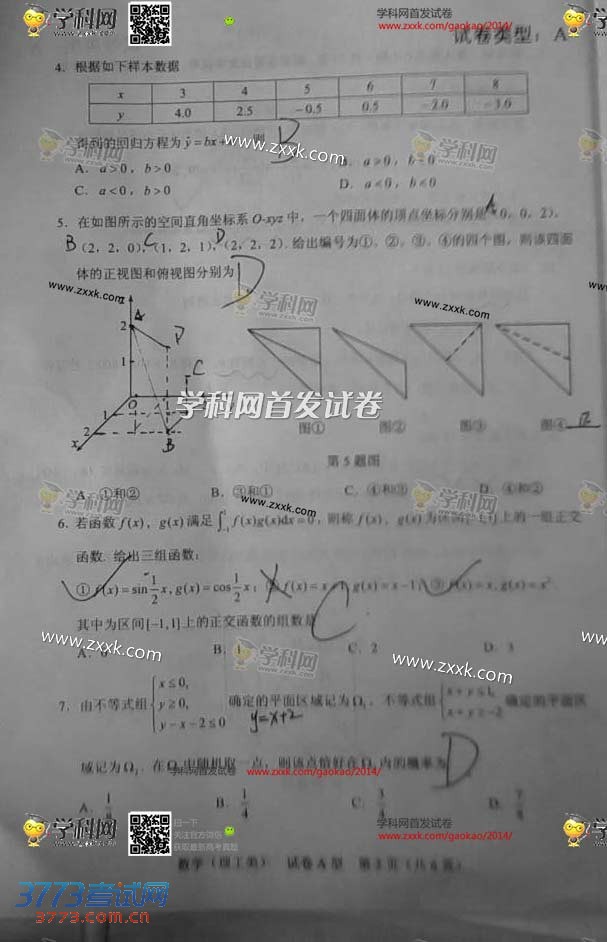 学科网
学科网首发试卷
www.zxxk.com/gaokao/2014/
试卷类型：A
4. 根据如下样本数据
x 3 4 5 6 7 8
y 4.0 2.5 −0.5 0.5 −2.0 −3.0
得到的回归方程为ŷ=bx+ 则 B
www.zxxk.com
学科网
学科网
A. a>0，b>0 B. a>0，b<0
C. a<0，b>0 D. a<0，b<0
5. 在如图所示的空间直角坐标系 O-xyz 中，一个四面体的顶点坐标分别是 A 0，0，2)，
B (2，2，0)，C (1，2，1)，D (2，2，2). 给出编号为①、②、③、④的四个图，则该四面
体的正视图和俯视图分别为 D
www.zxxk.com
学科网
www.zxxk.com
z A
2 D
1 C
O
1
2 B
x
学科网首发试卷
www.zxxk.com
图① 图② 图③ 图④ 正
第5题图
A. ①和② B. ③和① C. ④和③ D. ④和②
学科网
www.zxxk.com
学科网
6. 若函数 f(x)，g(x) 满足∫₋₁¹ f(x)g(x)dx=0，则称 f(x)，g(x) 为区间[-1,1]上的一组正交
函数. 给出三组函数：
① f(x)=sin½x, g(x)=cos½x； ② f(x)=x+1, g(x)=x−1； ③ f(x)=x, g(x)=x²
其中为区间[−1,1]上的正交函数的组数是 C
www.zxxk.com
学科网
www.zxxk.com
www.zxxk.com
A. 0 B. 1 C. 2 D. 3
7. 由不等式组 { x≤0, y≥0, y−x−2≤0 确定的平面区域记为Ω₁，不等式组 { x+y≤1, x+y≥−2 确定的平面区
y=x+2
域记为Ω₂，在Ω₁中随机取一点，则该点恰好在Ω₂内的概率为 D
学科网首发试卷
www.zxxk.com/gaokao/2014/
A. 1/8 B. 1/4 C. 3/4 D. 7/8
学科网
扫一下
关注官方微信
获取最新高考真题
学科网首发试卷
www.zxxk.com/gaokao/2014/
数学（理工类） 试卷A型 第2页（共6页）
3773考试网
3773.com.cn